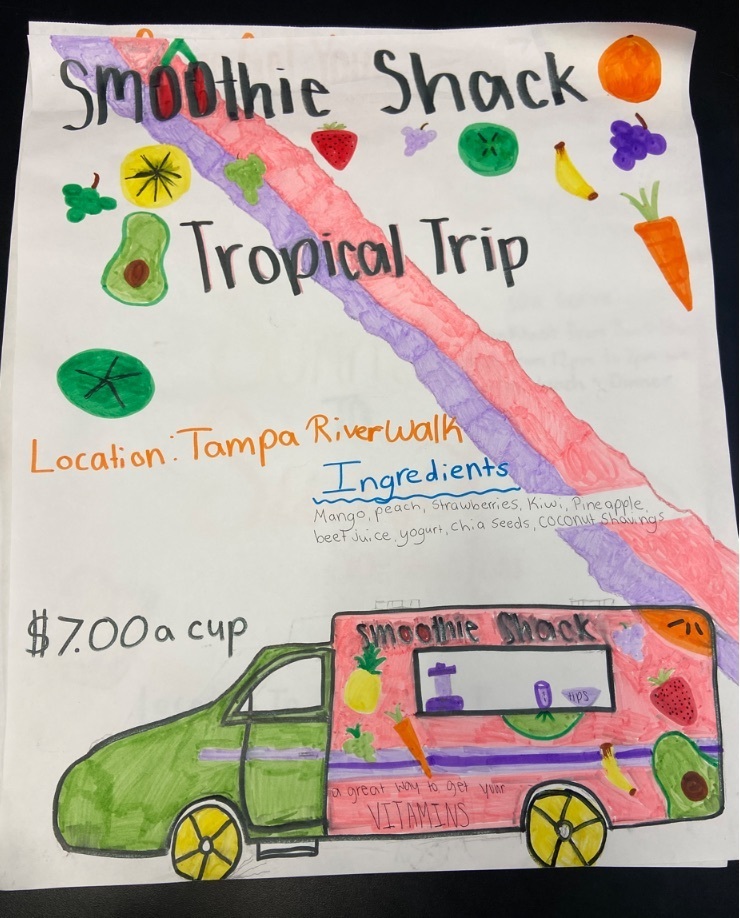 Smoothie Shack
Tropical Trip
Location: Tampa RiverWalk
Ingredients
Mango, peach, Strawberries, Kiwi, Pineapple,
beet juice, yogurt, chia seeds, coconut shavings
$7.00 a cup
Smoothie Shack
tips
a great way to get your
VITAMINS